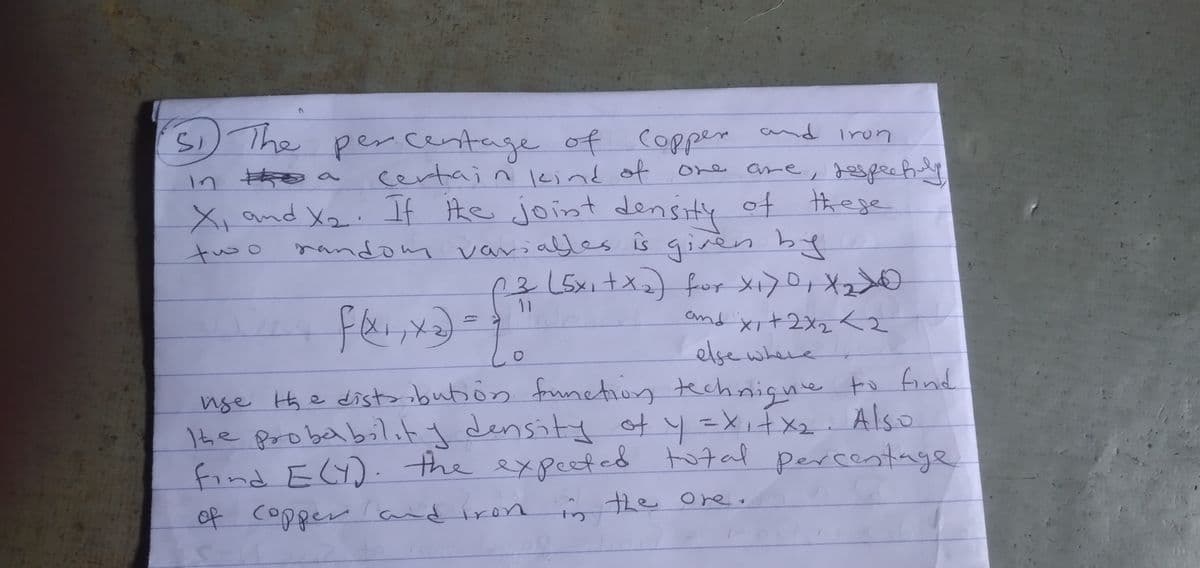 51) The percentage of copper and iron
in a certain kind of one are, respectively,
X₁ and X₂. If the joint density of these
two random variables is given by
f(x₁,x₂) = { 3/11 (5x₁+x₂) for x₁>0, x₂>0
and x₁+2x₂<2
0 elsewhere
use the distribution function technique to find
the probability density of y = x₁+x₂. Also
find E(Y). the expected total percentage
of copper and iron in the ore.